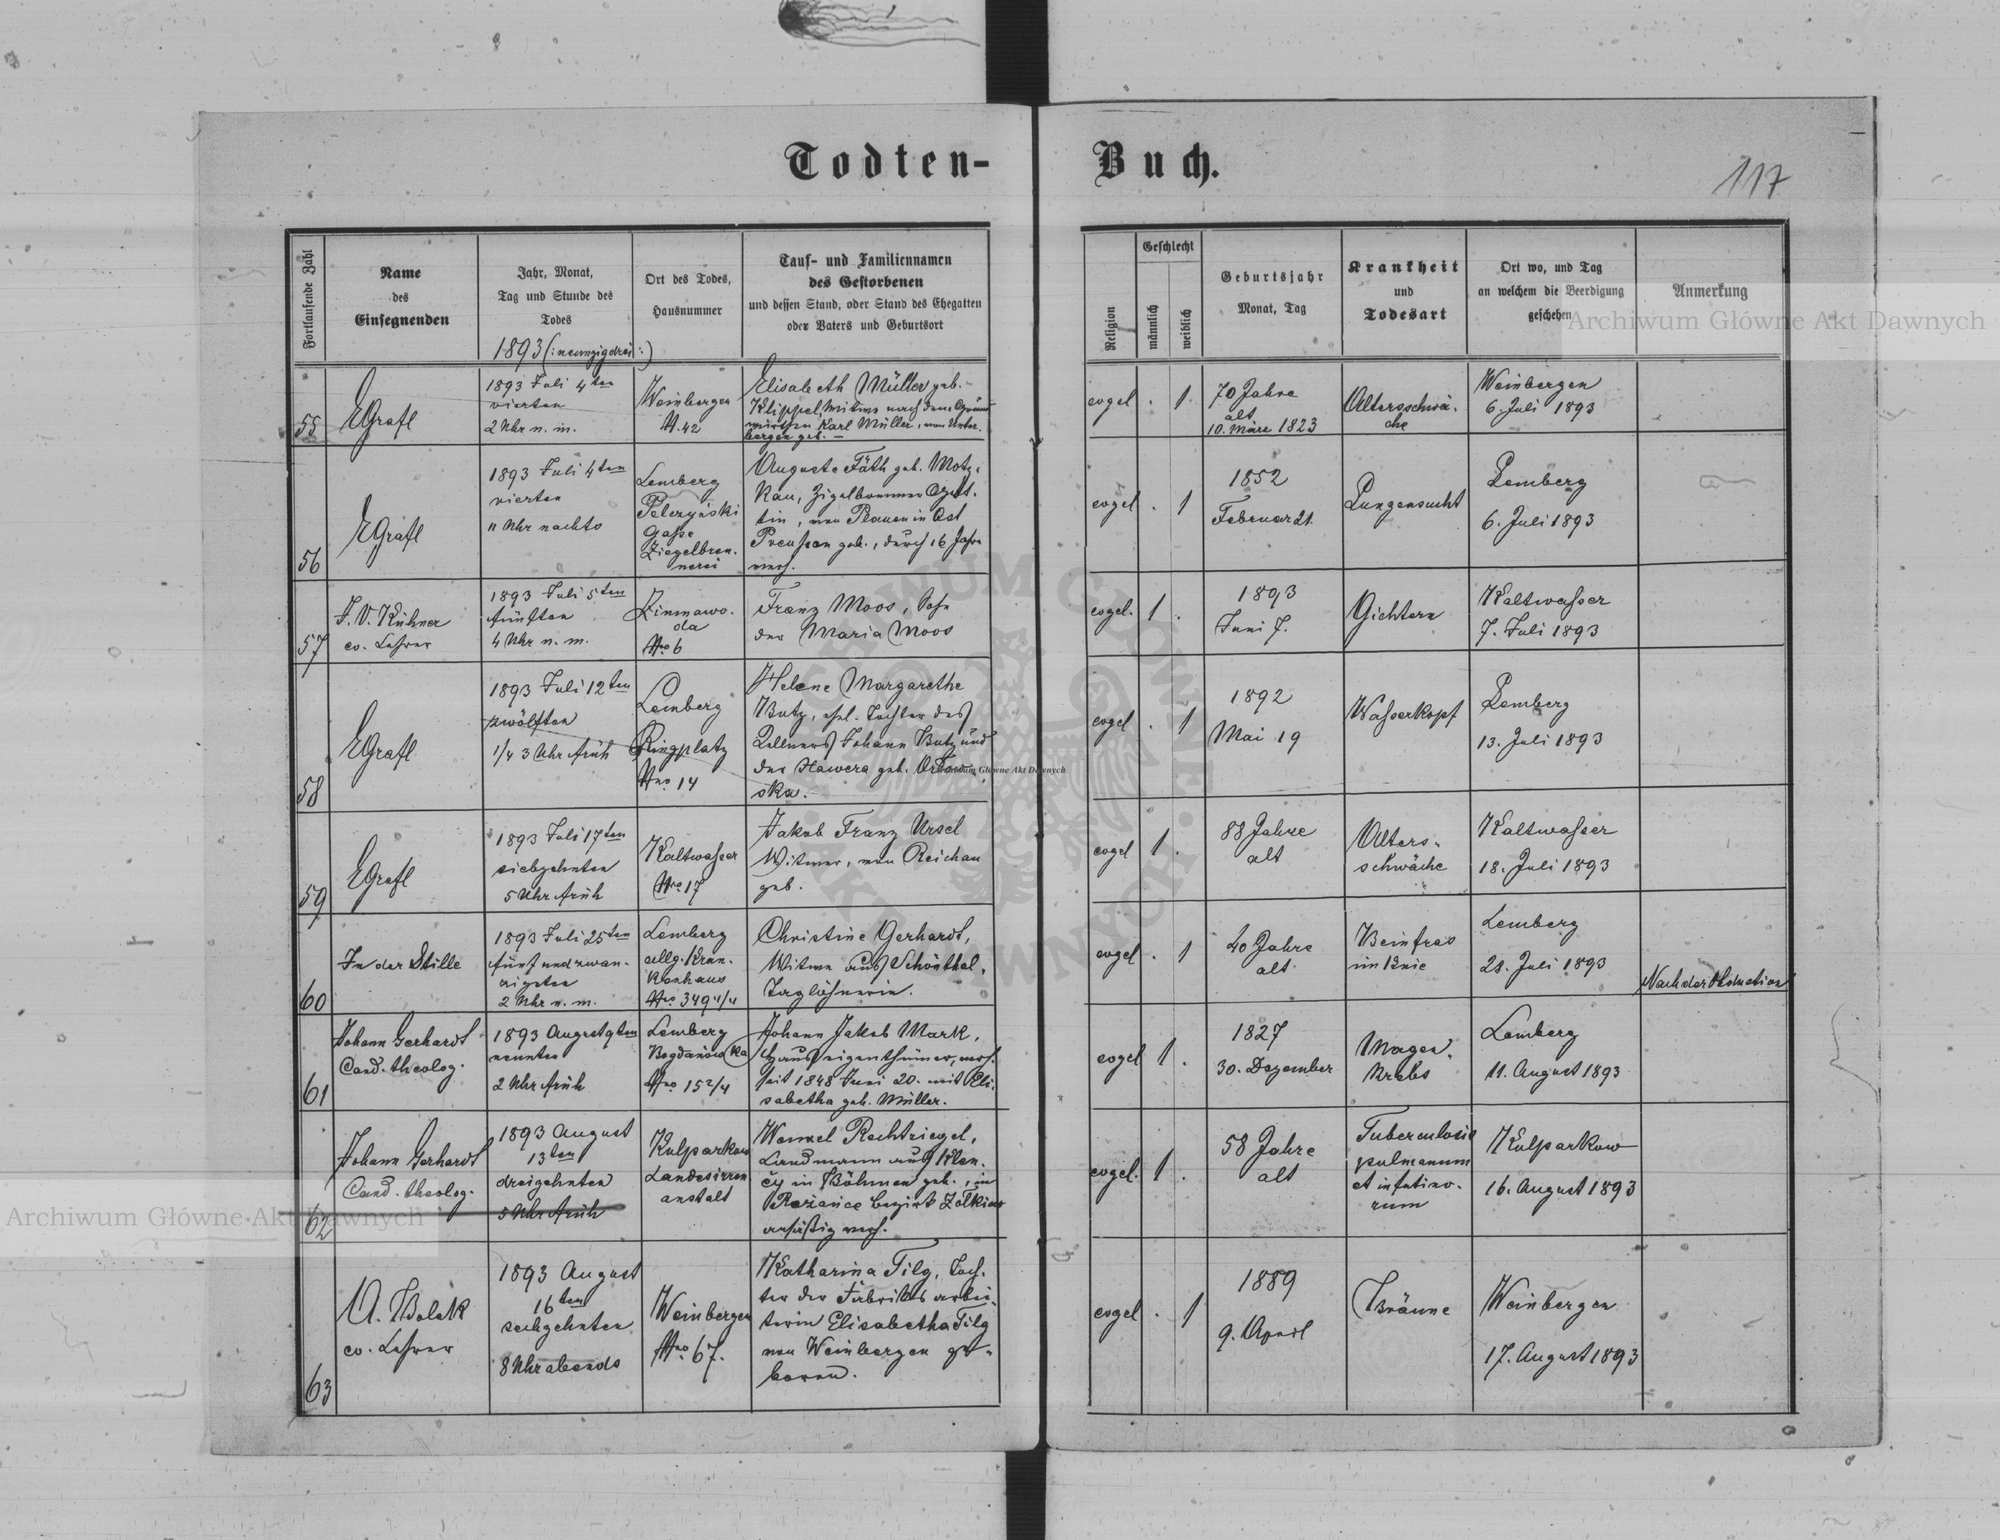 Todten-
Buch.
117
Fortlaufende Zahl
Name
des
Einsegnenden
Jahr, Monat,
Tag und Stunde des
Todes
1893 (: neunzigdrei :)
Ort des Todes,
Hausnummer
Tauf- und Familiennamen
des Gestorbenen
und dessen Stand, oder Stand des Ehegatten
oder Vaters und Geburtsort
Religion
Geschlecht
männlich
weiblich
Geburtsjahr
Monat, Tag
Krankheit
und
Todesart
Ort wo, und Tag
an welchem die Beerdigung
geschehen
Anmerkung
55
EGrafl
1893 Juli 4ten
vierten
2 Uhr n. m.
Weinbergen
N. 42
Elisabeth Müller geb.
Klippel, Witwe nach dem Grund-
wirthen Karl Müller, von Unter-
bergen geb. –
evgel
. 1
70 Jahre
alt
10. März 1823
Altersschwä-
che
Weinbergen
6. Juli 1893
56
EGrafl
1893 Juli 4ten
vierten
11 Uhr nachts
Lemberg
Pelczyński
Gasse
Ziegelbren-
nerei
Auguste Fäth geb. Motz-
kau, Zigelbrenner Gat-
tin, von Plauen in Ost
Preussen geb., durch 16 Jahre
verh.
evgel
. 1
1852
Februar 21.
Lungensucht
Lemberg
6. Juli 1893
57
J. V. Kühner
ev. Lehrer
1893 Juli 5ten
fünften
4 Uhr n. m.
Zimnawo-
da
Nro 6
Franz Moos, Sohn
der Maria Moos
evgel.
1 .
1893
Juni 7.
Gichtern
Kaltwasser
7. Juli 1893
58
EGrafl
1893 Juli 12ten
zwölften
1/4 3 Uhr früh
Lemberg
Ringplatz
Nro 14
Helene Margarethe
Butz, ehel. Tochter des
Kellners Johann Butz und
der Xawera geb.
ska. –
evgel
. 1
1892
Mai 19
Wasserkopf
Lemberg
13. Juli 1893
59
EGrafl
1893 Juli 17ten
siebzehnten
5 Uhr früh
Kaltwasser
Nro 17
Jakob Franz Ursel
Witwer, von Reichau
geb.
evgel
1 .
88 Jahre
alt
Alters-
schwäche
Kaltwasser
18. Juli 1893
60
In der Stille
1893 Juli 25ten
fünf und zwan-
zigsten
2 Uhr n. m.
Lemberg
allg. Kran-
kenhaus
Nro 349 4/4
Christine Gerhardt,
Witwe aus Schönthal,
Taglöhnerin.
evgel
. 1
40 Jahre
alt
Beinfras
im Knie
Lemberg
28. Juli 1893
Nach der
61
Johann Gerhardt
Cand. theolog.
1893 August 9ten
neunten
2 Uhr früh
Lemberg
Bogdanówka
Nro 15 2/4
Johann Jakob Mark,
Hauseigenthümer, verh.
seit 1848 Juni 20. mit Eli-
sabetha geb. Müller.
evgel
1 .
1827
30. Dezember
Magen-
krebs
Lemberg
11. August 1893
62
Johann Gerhardt
Cand. theolog.
1893 August
13ten
dreizehnten
5 Uhr früh
Kulparkow
Landesirren
anstalt
Wenzel Rechtziegel,
Landmann aus Klen-
čy in Böhmen geb., in
bezirk Zolkiew
ansässig verh.
evgel.
1 .
58 Jahre
alt
Tuberculosis
pulmanum
et intestino-
rum
Kulparkow
16. August 1893
63
A. Bolek
ev. Lehrer
1893 August
16ten
sechzehnten
8 Uhr abends
Weinbergen
Nro 67.
Katharina Tilg, Toch-
ter der Fabriksarbei-
terin Elisabetha Tilg
von Weinbergen ge-
boren.
evgel
. 1
1889
9. April
Bräune
Weinbergen
17. August 1893
Archiwum Główne Akt Dawnych
Archiwum Główne Akt Dawnych